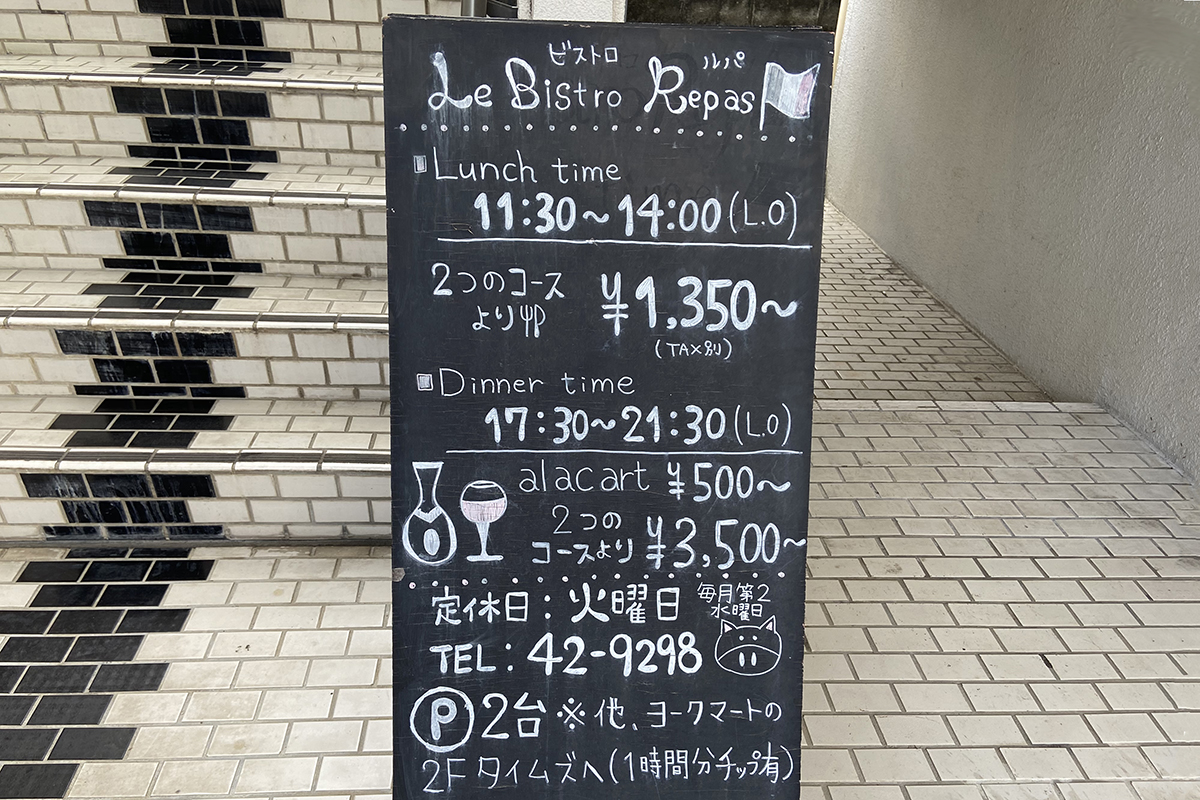 ビストロ ルパ
Le Bistro Repas
Lunch time
11:30~14:00(L.O)
2つのコース
より
¥1,350~
(TAX別)
Dinner time
17:30~21:30(L.O)
alacart ¥500~
2つの
コースより ¥3,500~
定休日:火曜日 毎月第2
水曜日
TEL:42-9298
Ⓟ2台※他、ヨークマートの
2Fタイムズへ(1時間分チップ有)